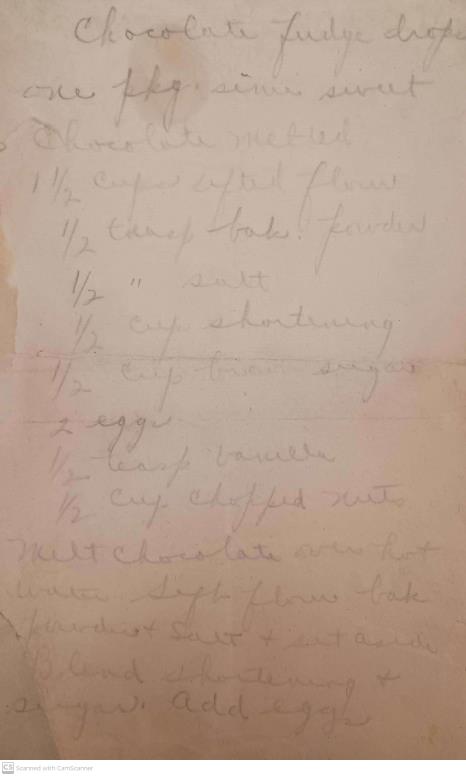 Chocolate fudge drops
one pkg. simi sweet
Chocolate melted
1 1/2 cups sifted flour
1/2 teasp bak. powder
1/2 " salt
1/2 cup shortening
1/2 cup brown sugar
2 eggs
1/2 teasp vanilla
1/2 cup chopped nuts
Melt chocolate over hot
water. Sift flour bak
powder & Salt & set aside
Blend shortening &
sugar. Add eggs
CS Scanned with CamScanner